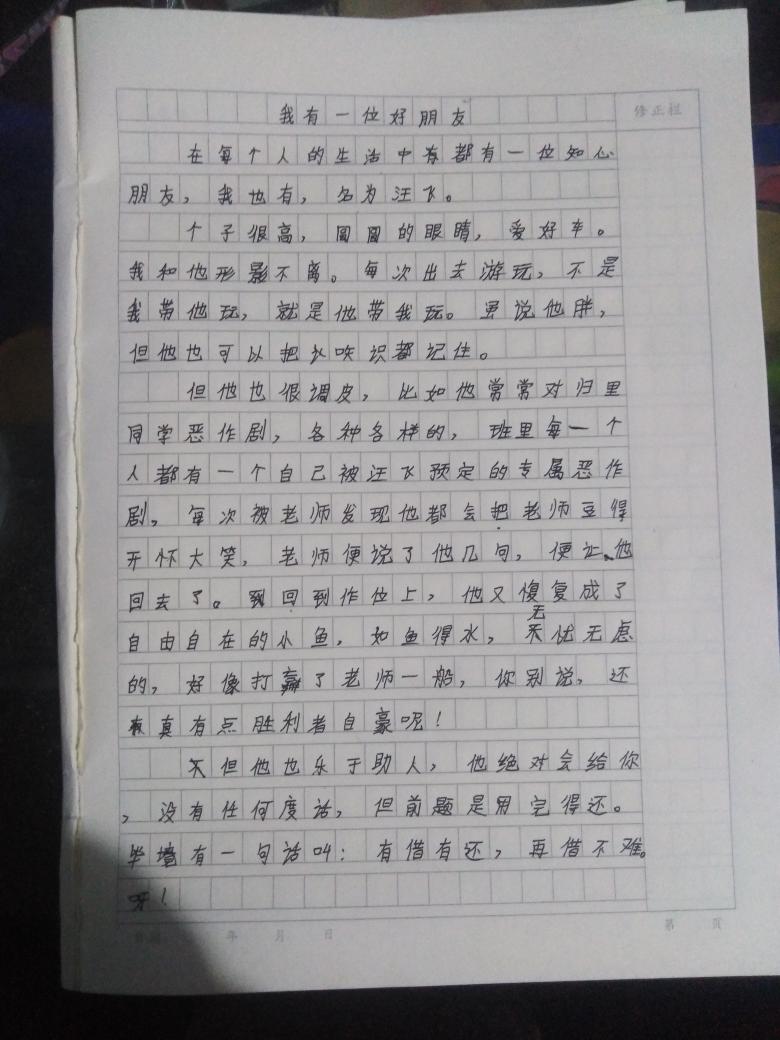 修正栏
我有一位好朋友
在每个人的生活中都有一位知心
朋友，我也有，名为汪飞。
个子很高，圆圆的眼睛，爱好车。
我和他形影不离。每次出去游玩，不是
我带他玩，就是他带我玩。虽说他胖，
但他也可以把知识都记住。
但他也很调皮，比如他常常对归里
同学恶作剧，各种各样的，班里每一个
人都有一个自己被汪飞预定的专属恶作
剧，每次被老师发现他都会把老师豆得
开怀大笑，老师便说了他几句，便让他
回去了。回到作位上，他又愎复成了
自由自在的小鱼，如鱼得水，无忧无虑
的，好像打赢了老师一船，你别说，还
真有点胜利者自豪呢！
但他也乐于助人，他绝对会给你
，没有任何度话，但前题是用完得还。
毕境有一句话叫：有借有还，再借不难。
呀！
年 月 日
第 页